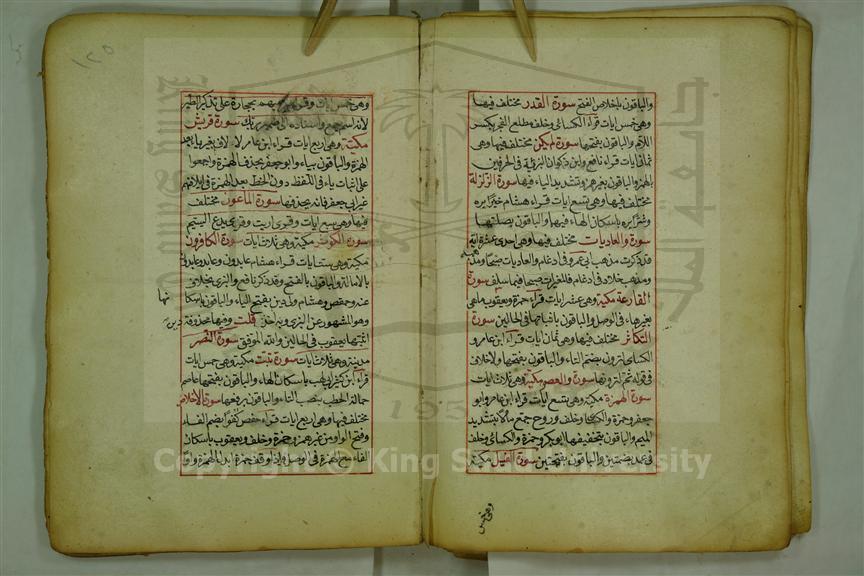 والباقون باخلاص الفتح سورة القدر مختلف فيها
وهي خمس ايات قراء الكسائي وخلف مطلع الفجر بكسر
اللام والباقون بفتحها سورة لم يكن مختلف فيها وهي
ثمان ايات قراء نافع وابن ذكوان البريئة في الحرفين
بالهمز والباقون بغير همز وتشديد الياء فيها سورة الزلزلة
مختلف فيها وهي تسع ايات قراء هشام خيرا يره
وشرا يره باسكان الهاء فيها والباقون بصلتها
سورة والعاديات مختلف فيها وهي احدى عشرة اية
قد ذكرت مذهب ابي عمرو في ادغام والعاديات ضبحا
ومذهب خلاد في ادغام فالمغيرات صبحا فيما سلف سورة
القارعة مكية وهي عشر ايات قراء حمزة ويعقوب ماهي
بغير هاء في الوصل والباقون باثباتها في الحالين سورة
التكاثر مختلف فيها وهي ثمان ايات قراء ابن عامر و
الكسائي لترون بضم التاء والباقون بفتحها ولاخلاف
في قوله ثم لترونها سورة والعصر مكية وهي ثلاث ايات
سورة الهمزة مكية وهي تسع ايات قراء ابن عامر وابو
جعفر وحمزة والكسائي وخلف وروح جمع مالا بتشديد
الميم والباقون بتخفيفها ابوبكر وحمزة والكسائي وخلف
في عمد بضمتين والباقون بفتحتين سورة الفيل مكية
وهي خمس
١٢٥
وهي خمس ايات بحجارة على تذكير الطير
لانه اسم جمع واسناده الى ضمير ربك سورة قريش
مكية وهي اربع ايات قراء ابن عامر لالاف بغير ياء بعد
الهمزة والباقون بياء وابو جعفر بحذف الهمزة واجمعوا
على اثبات ياء في اللفظ دون الخط بعد الهمزة في ايلافهم
غير ابي جعفر فانه يحذفها سورة الماعون مختلف
فيها وهي سبع ايات وقراء اريت وقرئ يدع اليتيم
سورة الكوثر مكية وهي ثلاث ايات سورة الكافرون
مكية وهي ست ايات قراء هشام عابدون وعابد عابدون
بالامالة والباقون بالفتح وقد ذكر نافع والبزي بخلاف
عنه وحفص وهشام ولي دين بفتح الياء والباقون باسكا
نها
وهو المشهور عن البزي وبه اخذ قلت وفيها محذوفة دين
اثبتها يعقوب في الحالين والله الموفق سورة النصر
مدنية وهي ثلاث ايات سورة تبت مكية وهي خمس ايات
قراء ابن كثير ابي لهب باسكان الهاء والباقون بفتحها عاصم
حمالة الحطب بنصب التاء والباقون برفعها سورة الاخلاص
مختلف فيها وهي اربع ايات قراء حفص كفوا بضم الفاء
وفتح الواو من غير همز وحمزة وخلف ويعقوب باسكان
الفاء مع الهمزة في الوصل واذا وقف حمزة ابدل الهمزة واوا
جامعة الملك سعود
1957
Copyright © King Saud University